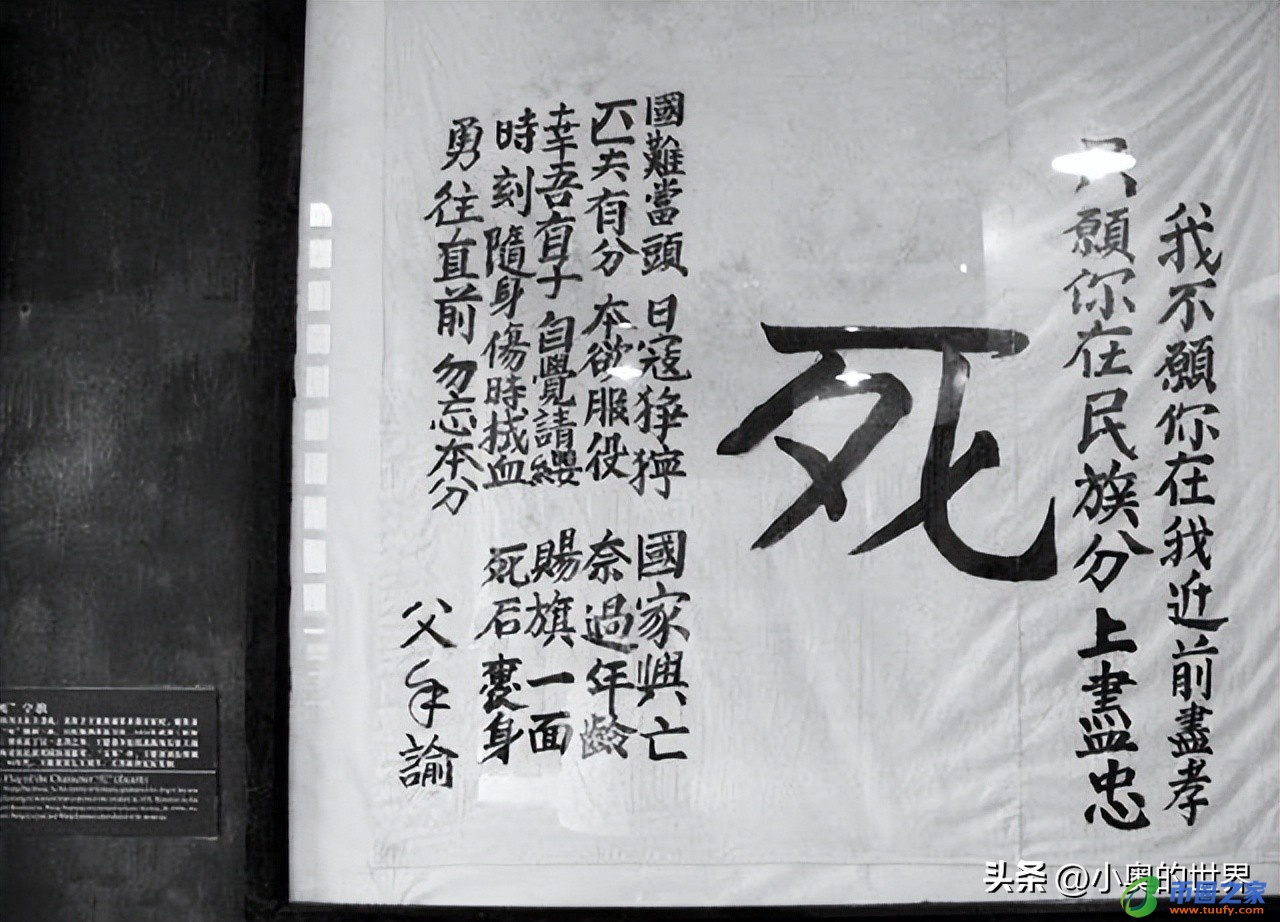 我不願你在我近前盡孝
只願你在民族分上盡忠
死
國難當頭 日寇猙獰 國家興亡
匹夫有分 本欲服役 奈過年齡
幸吾有子 自覺請纓 賜旗一面
時刻隨身 傷時拭血 死后裹身
勇往直前 勿忘本分
父手諭
字旗
Flag of the Character "死"
头条 @小奥的世界
币圈之家
www.tuufy.com